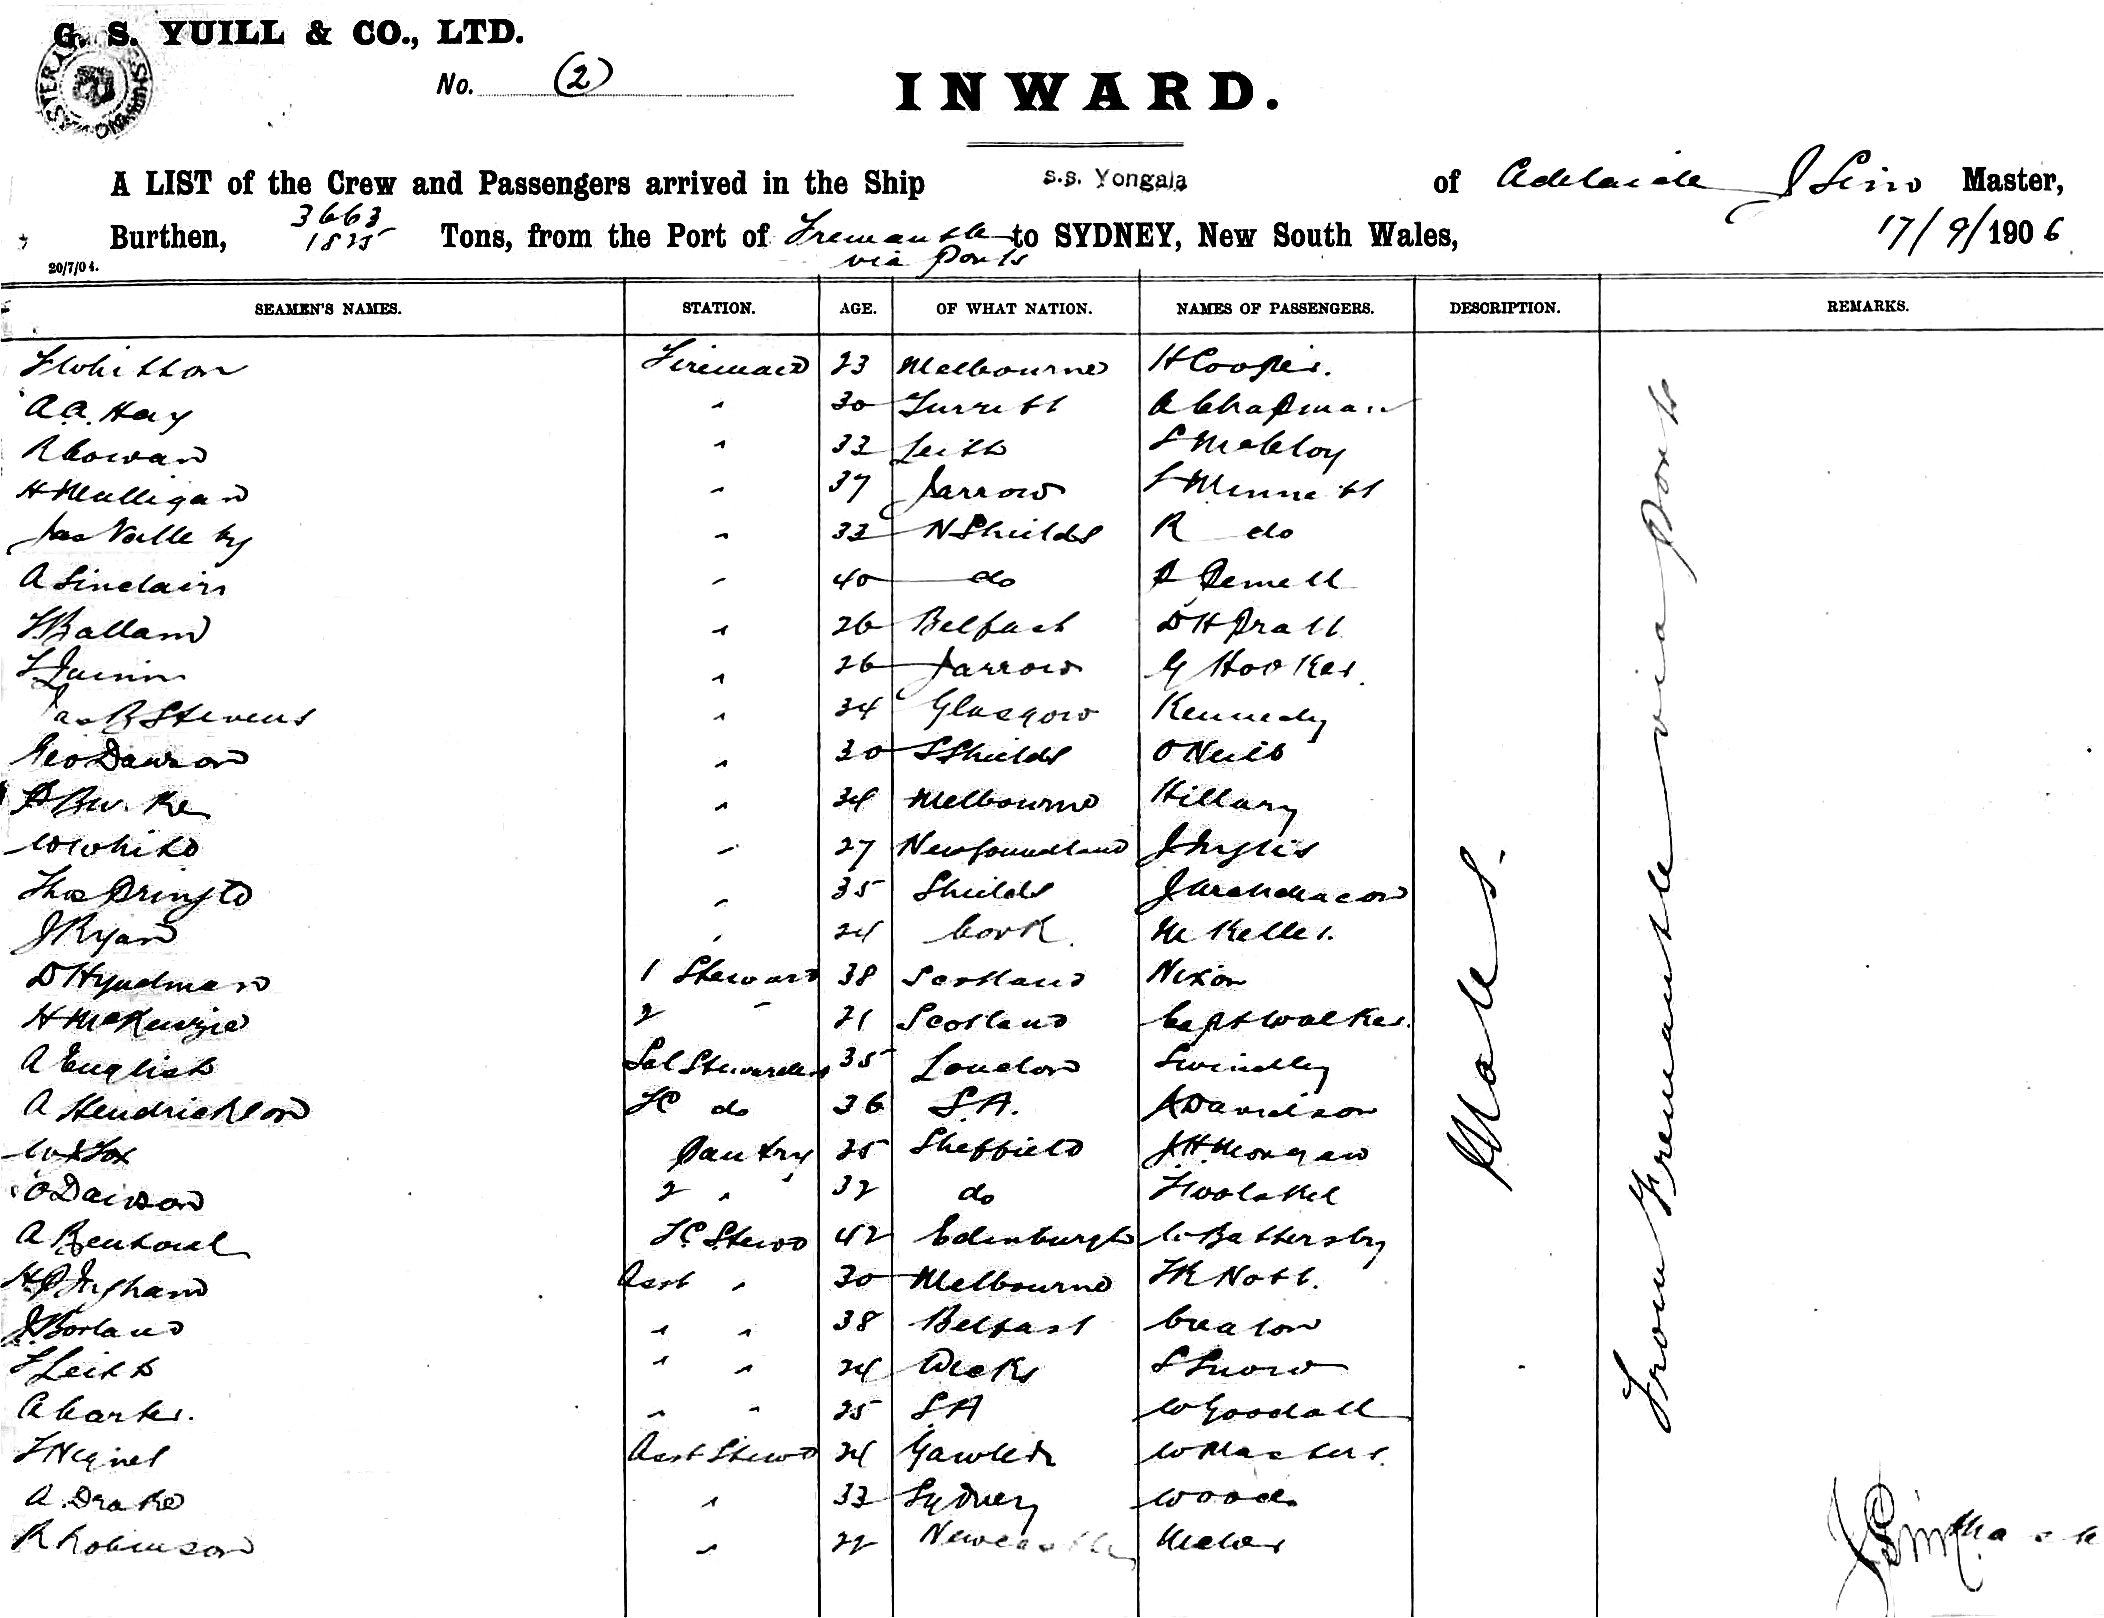 G. S. YUILL & CO., LTD.
No. (2)
INWARD.
A LIST of the Crew and Passengers arrived in the Ship s.s. Yongala of Adelaide Master,
3663
Burthen, 1825 Tons, from the Port of Fremantle to SYDNEY, New South Wales, 17/9/1906
via Ports
20/7/04.
SEAMEN'S NAMES. STATION. AGE. OF WHAT NATION. NAMES OF PASSENGERS. DESCRIPTION. REMARKS.
Whitton Fireman 23 Melbourne H Cooper.
A.A. Hay " 30 A Chapman
R Cowan " 33 Leith S McCloy
H Mulligan " 37 Jarrow Minnett
Jas " 33 N Shields R do
A Sinclair " 40 do
Ballam " 26 Belfast D H Pratt
Quinn " 26 Jarrow G Hooker.
Jas R Stevens " 34 Glasgow Kennedy
Geo Dawson " 30 S Shields O Neill
Burke " 34 Melbourne Hillary
W White " 27 Newfoundland J Inglis
Thos Pringle " 35 Shields
J Ryan " 24 Cork. McKeller.
D Hyndman 1 Steward 38 Scotland Nixon
H McKenzie 2 " 21 Scotland Capt Walker.
A English Sal Stewardess 35 London Swindley
A Hendrickson do 36 S.A. A Davidson
Fox Pantry 25 Sheffield J.H. Morgan
O Dawson 2 " 32 do
A 42 Edinburgh C Battersby
Ingham Asst " 30 Melbourne Nott.
J Borland " " 38 Belfast Creaton
Leith " " 24 Wicks S Snow
A Carter. " " 25 S.A W Goodall
Asst Stewd 24 Gawler W Masters.
A Drake " 33 Sydney Woods
R Robinson " 22 Newcastle
Males.
From Fremantle via ports